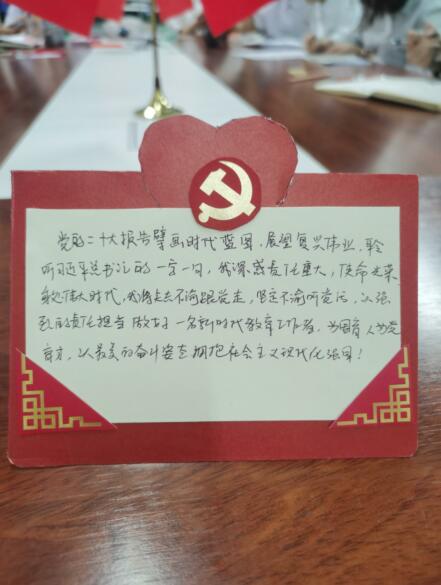 党的二十大报告擘画时代蓝图，展望复兴伟业，聆
听习近平总书记的一言一句，我深感责任重大，使命光荣
伟大时代，我将矢志不渝跟党走，坚定不渝听党话，以强
烈的责任担当做好一名新时代教育工作者，为国育人为党
育才，以最美的奋斗姿态拥抱社会主义现代化强国！